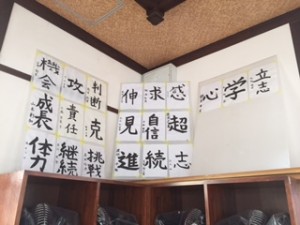 機会
攻
判断
成長
責任
克
体力
継続
挑戦
伸
求
感
見
自信
超
進
続
志
心
学
立志